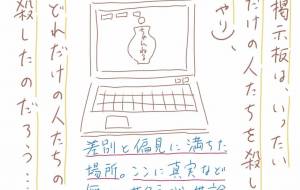 掲示板は、いったい
だけの人たちを殺し
やり、
どれだけの人たちの
殺したのだろう…
ちゃんねる
差別と偏見に満ちた
場所。ここに真実など